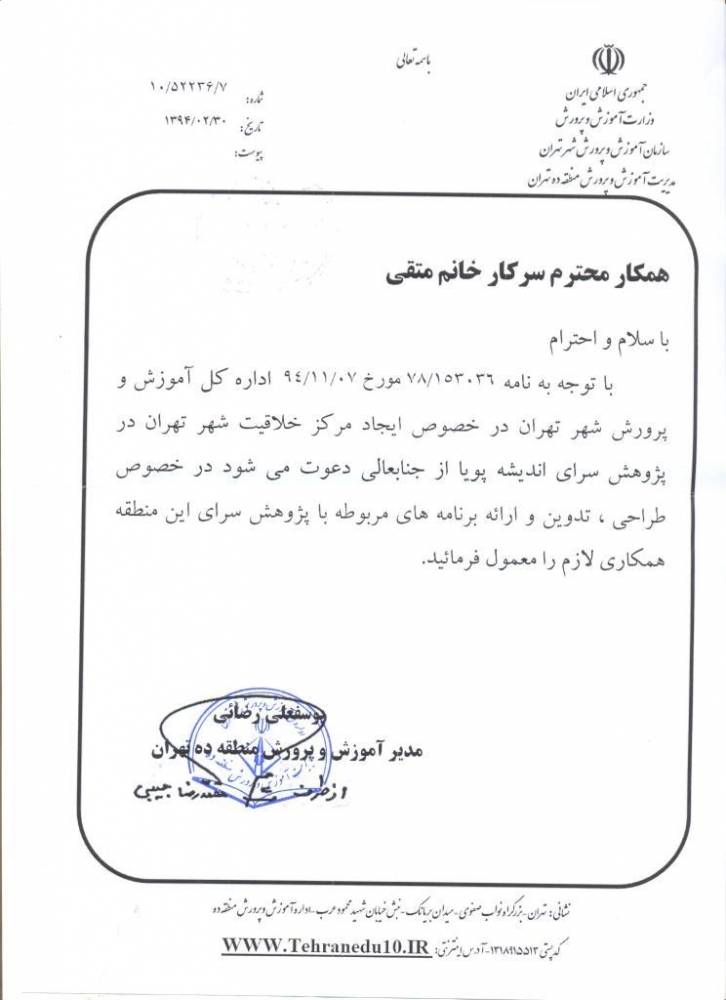 باسمه تعالی
جمهوری اسلامی ایران
وزارت آموزش و پرورش
سازمان آموزش و پرورش شهر تهران
مدیریت آموزش و پرورش منطقه ده تهران
شماره: ۱۰/۵۲۲۳۶/۷
تاریخ: ۱۳۹۴/۰۲/۳۰
پیوست:
همکار محترم سرکار خانم متقی
با سلام و احترام
با توجه به نامه ۷۸/۱۵۳۰۳۶ مورخ ۹٤/۱۱/۰۷ اداره کل آموزش و
پرورش شهر تهران در خصوص ایجاد مرکز خلاقیت شهر تهران در
پژوهش سرای اندیشه پویا از جنابعالی دعوت می شود در خصوص
طراحی ، تدوین و ارائه برنامه های مربوطه با پژوهش سرای این منطقه
همکاری لازم را معمول فرمائید.
یوسفعلی رضائی
مدیر آموزش و پرورش منطقه ده تهران
از طرف محمدرضا حبیبی
نشانی: تهران-بزرگراه نواب صفوی-میدان بریانک-نبش خیابان شهید محمود عرب-اداره آموزش و پرورش منطقه ده
کد پستی ۱۳۱۸۹۱۵۵۱۳-آدرس اینترنتی: WWW.Tehranedu10.IR